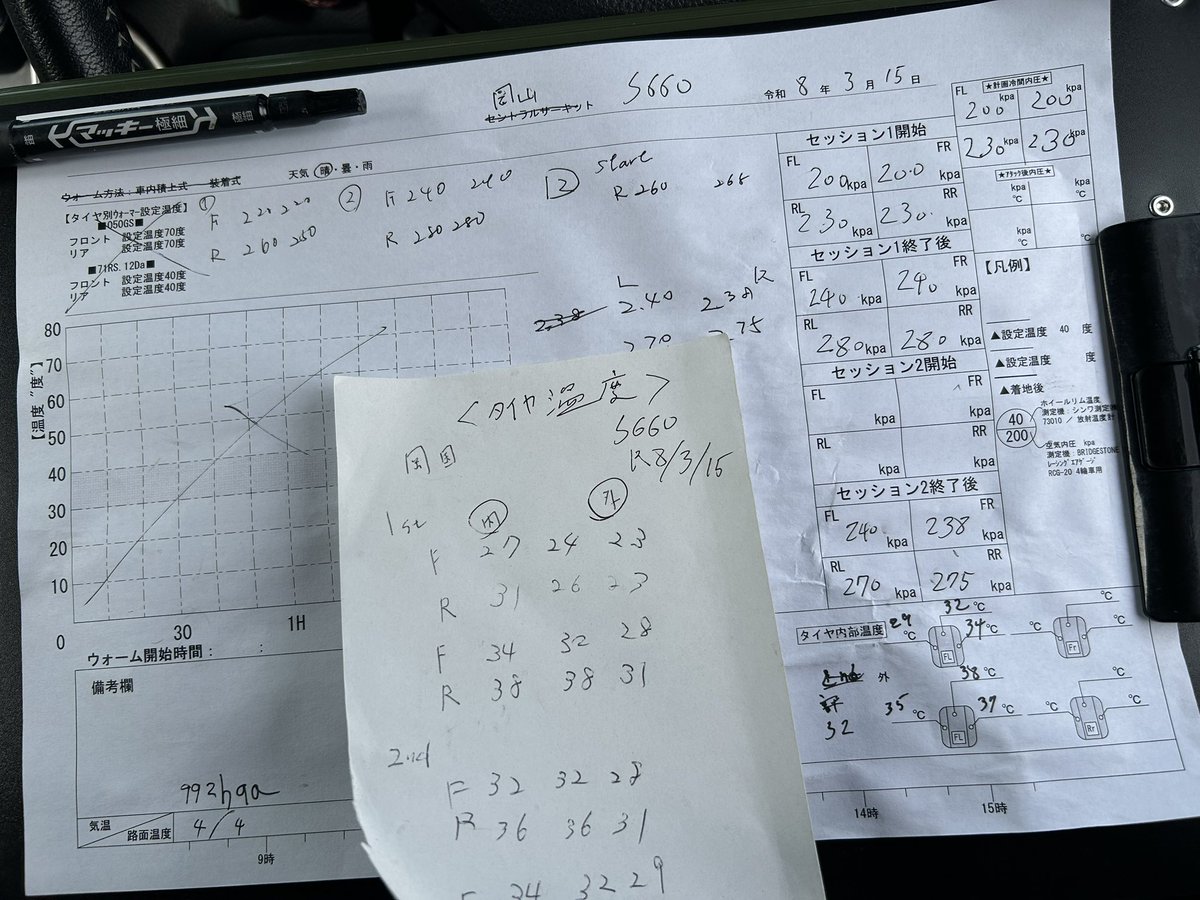 マッキー極細
極細
岡山
セントラルサーキット
S660
令和 8 年 3 月 15 日
ウォーム方法:車内積上式 装着式
天気 晴・曇・雨
【タイヤ別ウォーマー設定温度】
■Q50GS■
フロント 設定温度70度
リア 設定温度70度
■71RS.12Da■
フロント 設定温度40度
リア 設定温度40度
① F 220 220
R 260 250
② F 240 240
R 280 280
2 start
R 260 265
L R
2.38 2.40 2.38
2.70 2.75
【温度 "度"】
80
70
60
50
40
30
20
10
0
30 1H
ウォーム開始時間: :
備考欄
992hpa
気温 路面温度 4/4
9時
<タイヤ温度>
S660
岡国 R8/3/15
1st 内 外
F 27 24 23
R 31 26 23
F 34 32 28
R 38 38 31
2nd
F 32 32 28
R 36 36 31
F 34 32 29
セッション1開始
FL 200kpa FR 200kpa
RL 230kpa RR 230kpa
セッション1終了後
FL 240kpa FR 240kpa
RL 280kpa RR 280kpa
セッション2開始
FL kpa FR kpa
RL kpa RR kpa
セッション2終了後
FL 240kpa FR 238kpa
RL 270kpa RR 275kpa
★計画冷間内圧★
FL 200kpa 200kpa
230kpa 230kpa
★アタック後内圧★
kpa kpa
℃ ℃
kpa kpa
℃ ℃
【凡例】
▲設定温度 40 度
▲設定温度 度
▲着地後
40
200
ホイールリム温度
測定機:シンワ測定機
73010 / 放射温度計
空気内圧 kpa
測定機:BRIDGESTONE
レーシングエアゲージ
RCG-20 4輪車用
タイヤ内部温度
29℃ 32℃ 34℃ FL
℃ ℃ ℃ Fr
外
32
35℃ 38℃ 37℃ FL
℃ ℃ ℃ Rr
14時 15時